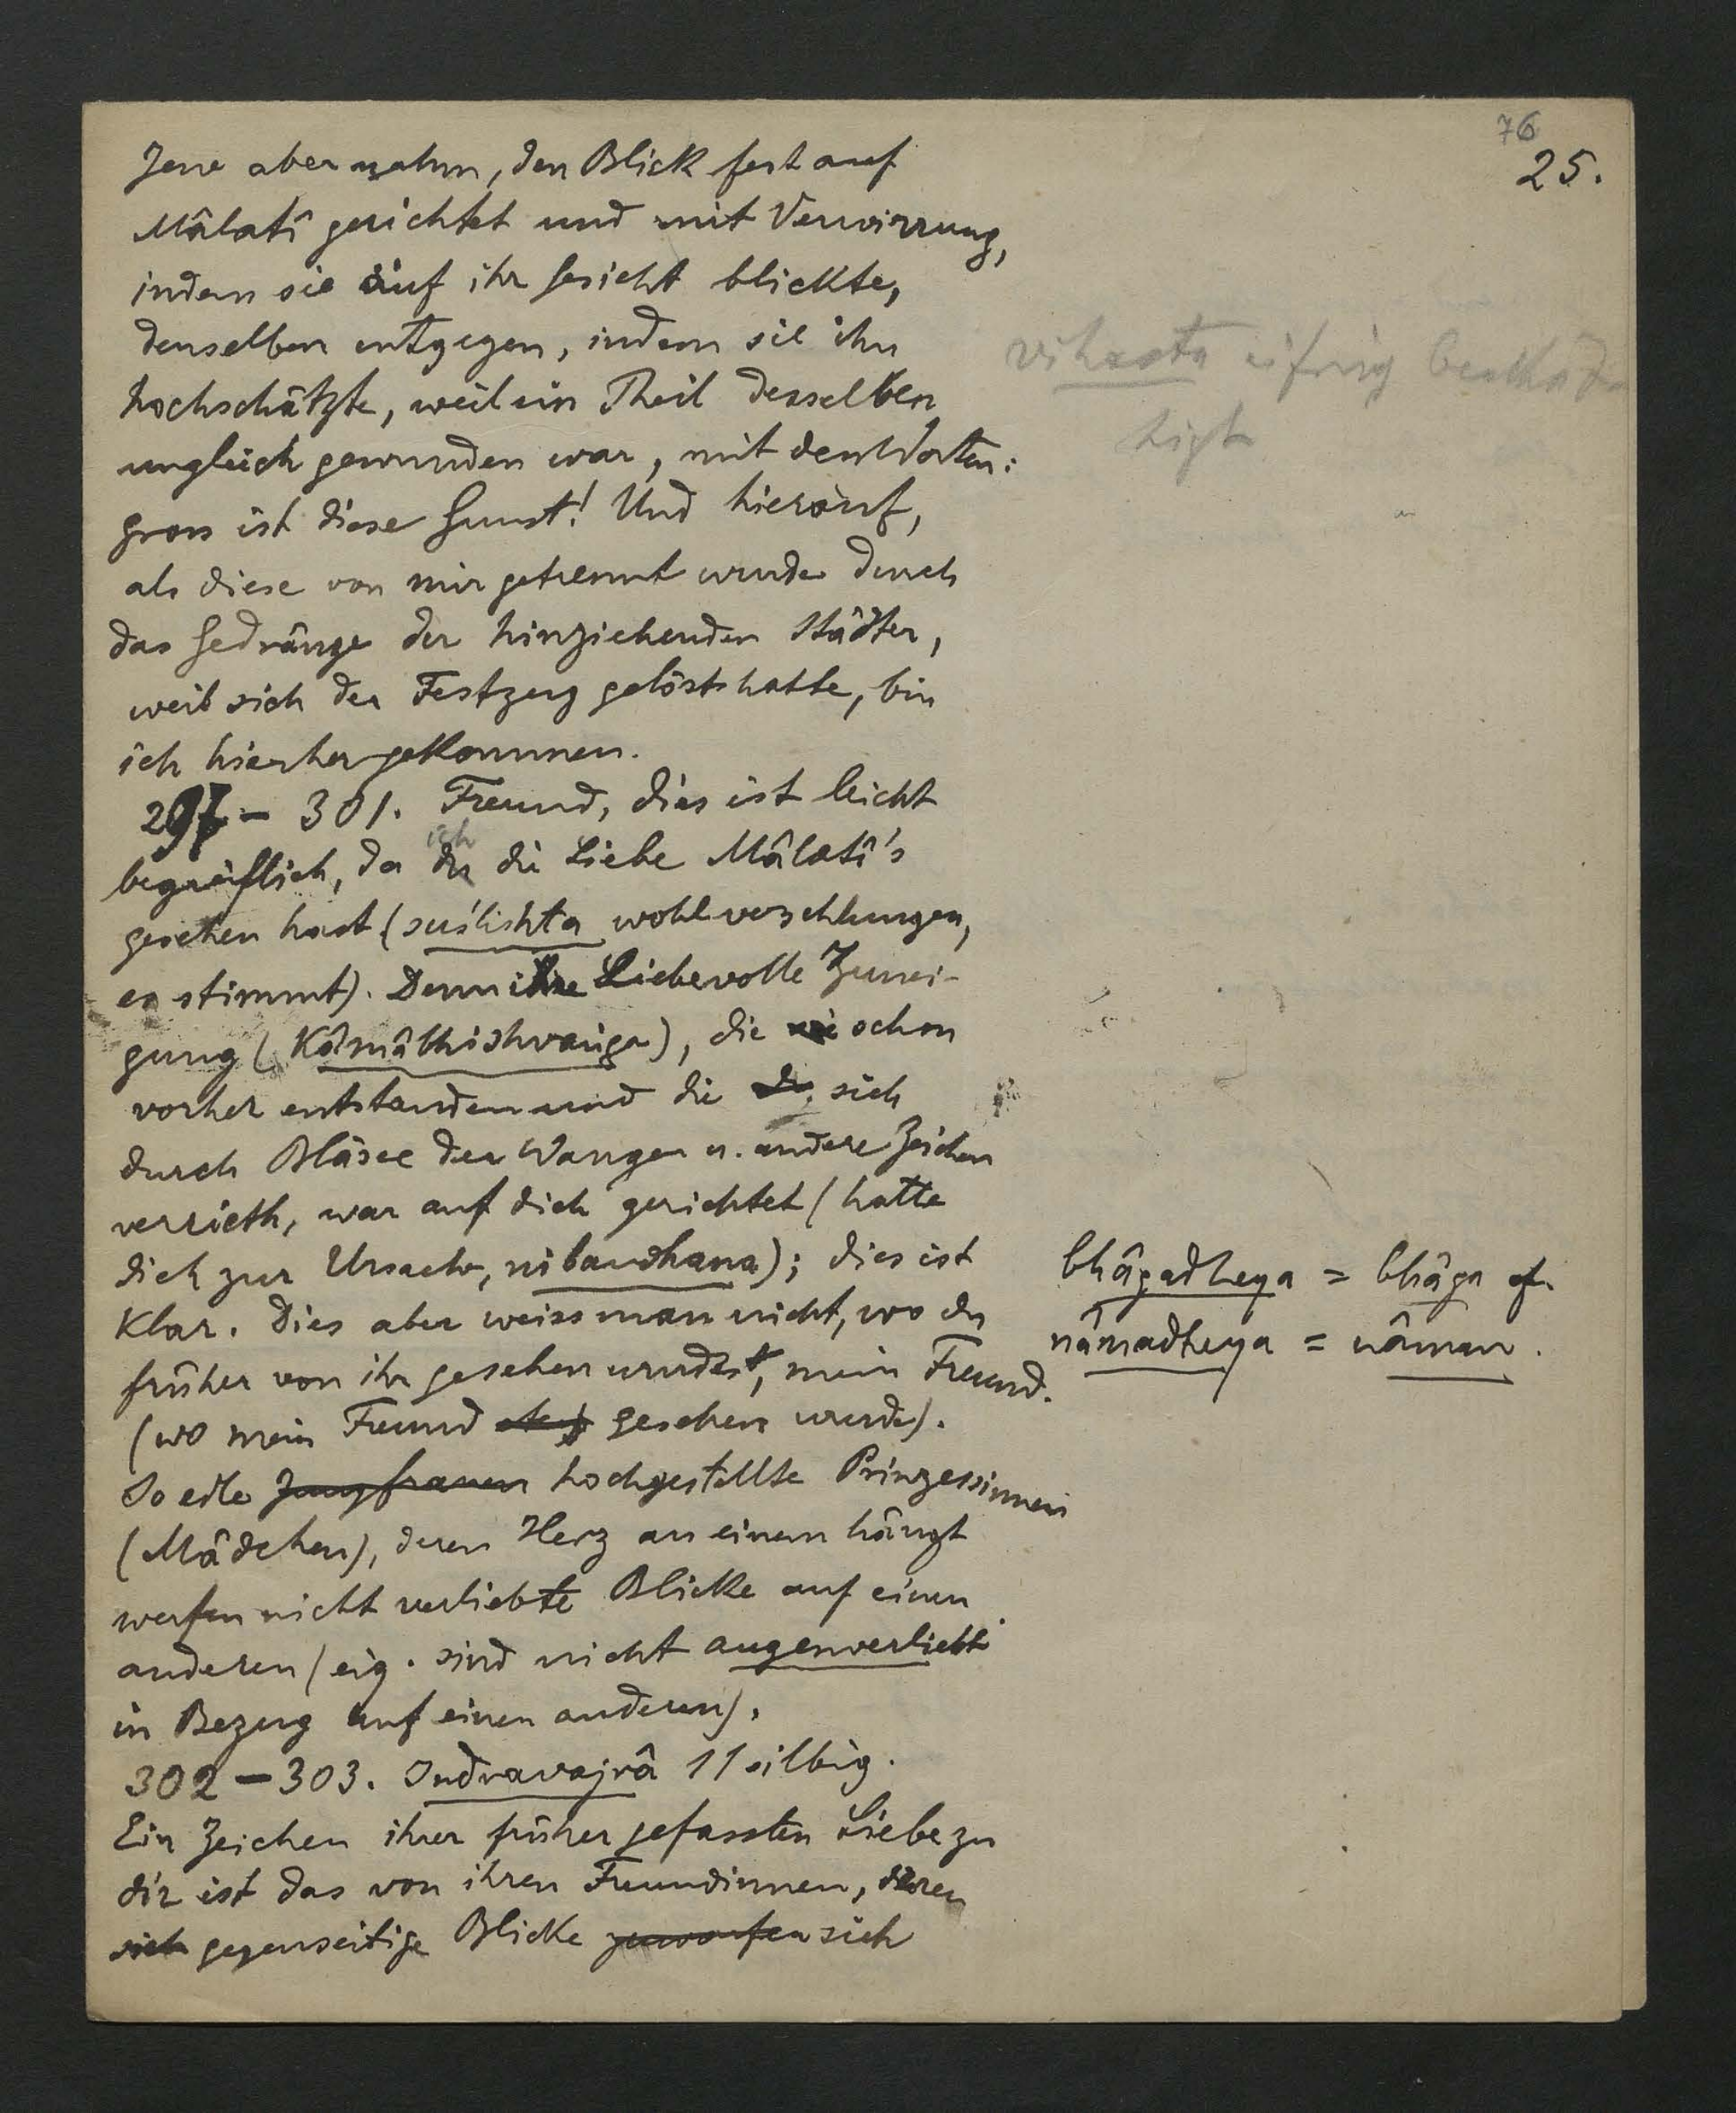 76
25.
Jene aber nahm, den Blick fest auf
Mâlatî gerichtet und mit Verwirrung,
indem sie auf ihr Gesicht blickte,
denselben entgegen, indem sie ihn
hochschätzte, weil ein Theil desselben
ungleich gewunden war, mit den Worten:
gross ist diese Gunst! Und hierauf,
als diese von mir getrennt wurde durch
das Gedränge der hinziehenden Städter,
weil sich der Festzug gelöst hatte, bin
ich hierher gekommen.
297 – 301. Freund, dies ist leicht
ich
begreiflich, da du die Liebe Mâlatî's
gesehen hast (suślishta wohl verschlungen,
es stimmt). Denn ihre Liebevolle Zunei-
gung (Kâmâbhishvanga), die schon
vorher entstanden und die du sich
durch Blässe der Wangen u. andere Zeichen
verrieth, war auf dich gerichtet (hatte
dich zur Ursache, nibandhana); dies ist
Klar. Dies aber weiss man nicht, wo du
früher von ihr gesehen wurdest, mein Freund.
(wo mein Freund gesehen wurde).
So edle Jungfrauen hochgestellte Prinzessinnen
(Mädchen), deren Herz an einem hängt
werfen nicht verliebte Blicke auf einen
anderen (eig. sind nicht augenverliebt
in Bezug auf einen anderen).
302 – 303. Indravajrâ 11 silbig.
Ein Zeichen ihrer früher gefassten Liebe zu
dir ist das von ihren Freundinnen, deren
sich gegenseitige Blicke zuworfen sich
vihasta eifrig
tigt
bhâgadheya = bhâga cf.
nâmadheya = nâman.